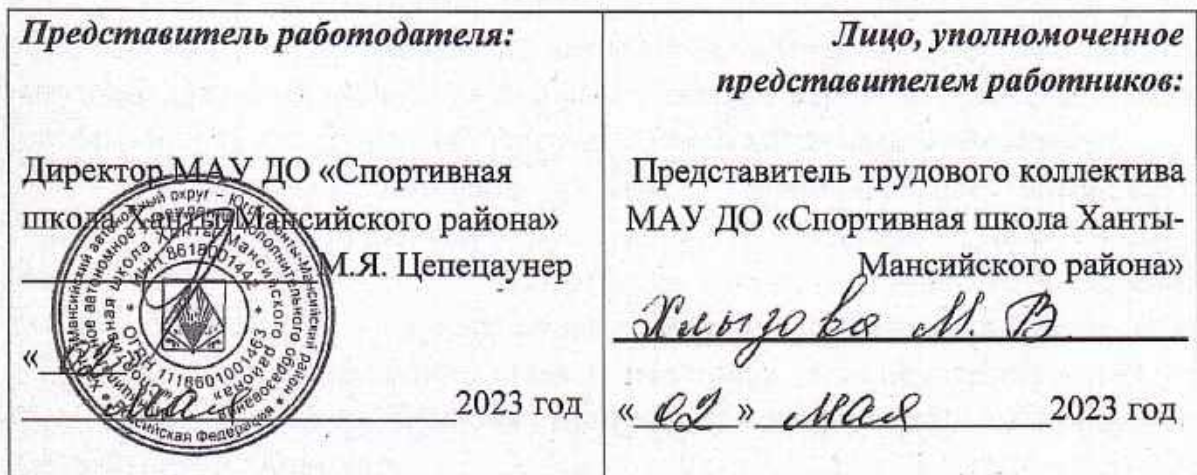 Представитель работодателя:
Директор МАУ ДО «Спортивная
школа Ханты-Мансийского района»
М.Я. Цепецаунер
« 02
мая 2023 год
Лицо, уполномоченное
представителем работников:
Представитель трудового коллектива
МАУ ДО «Спортивная школа Ханты-
Мансийского района»
Хлызова М. В
« 02 » мая 2023 год
ИНН 8618001442
ОГРН 1118601001463
Российская Федерация